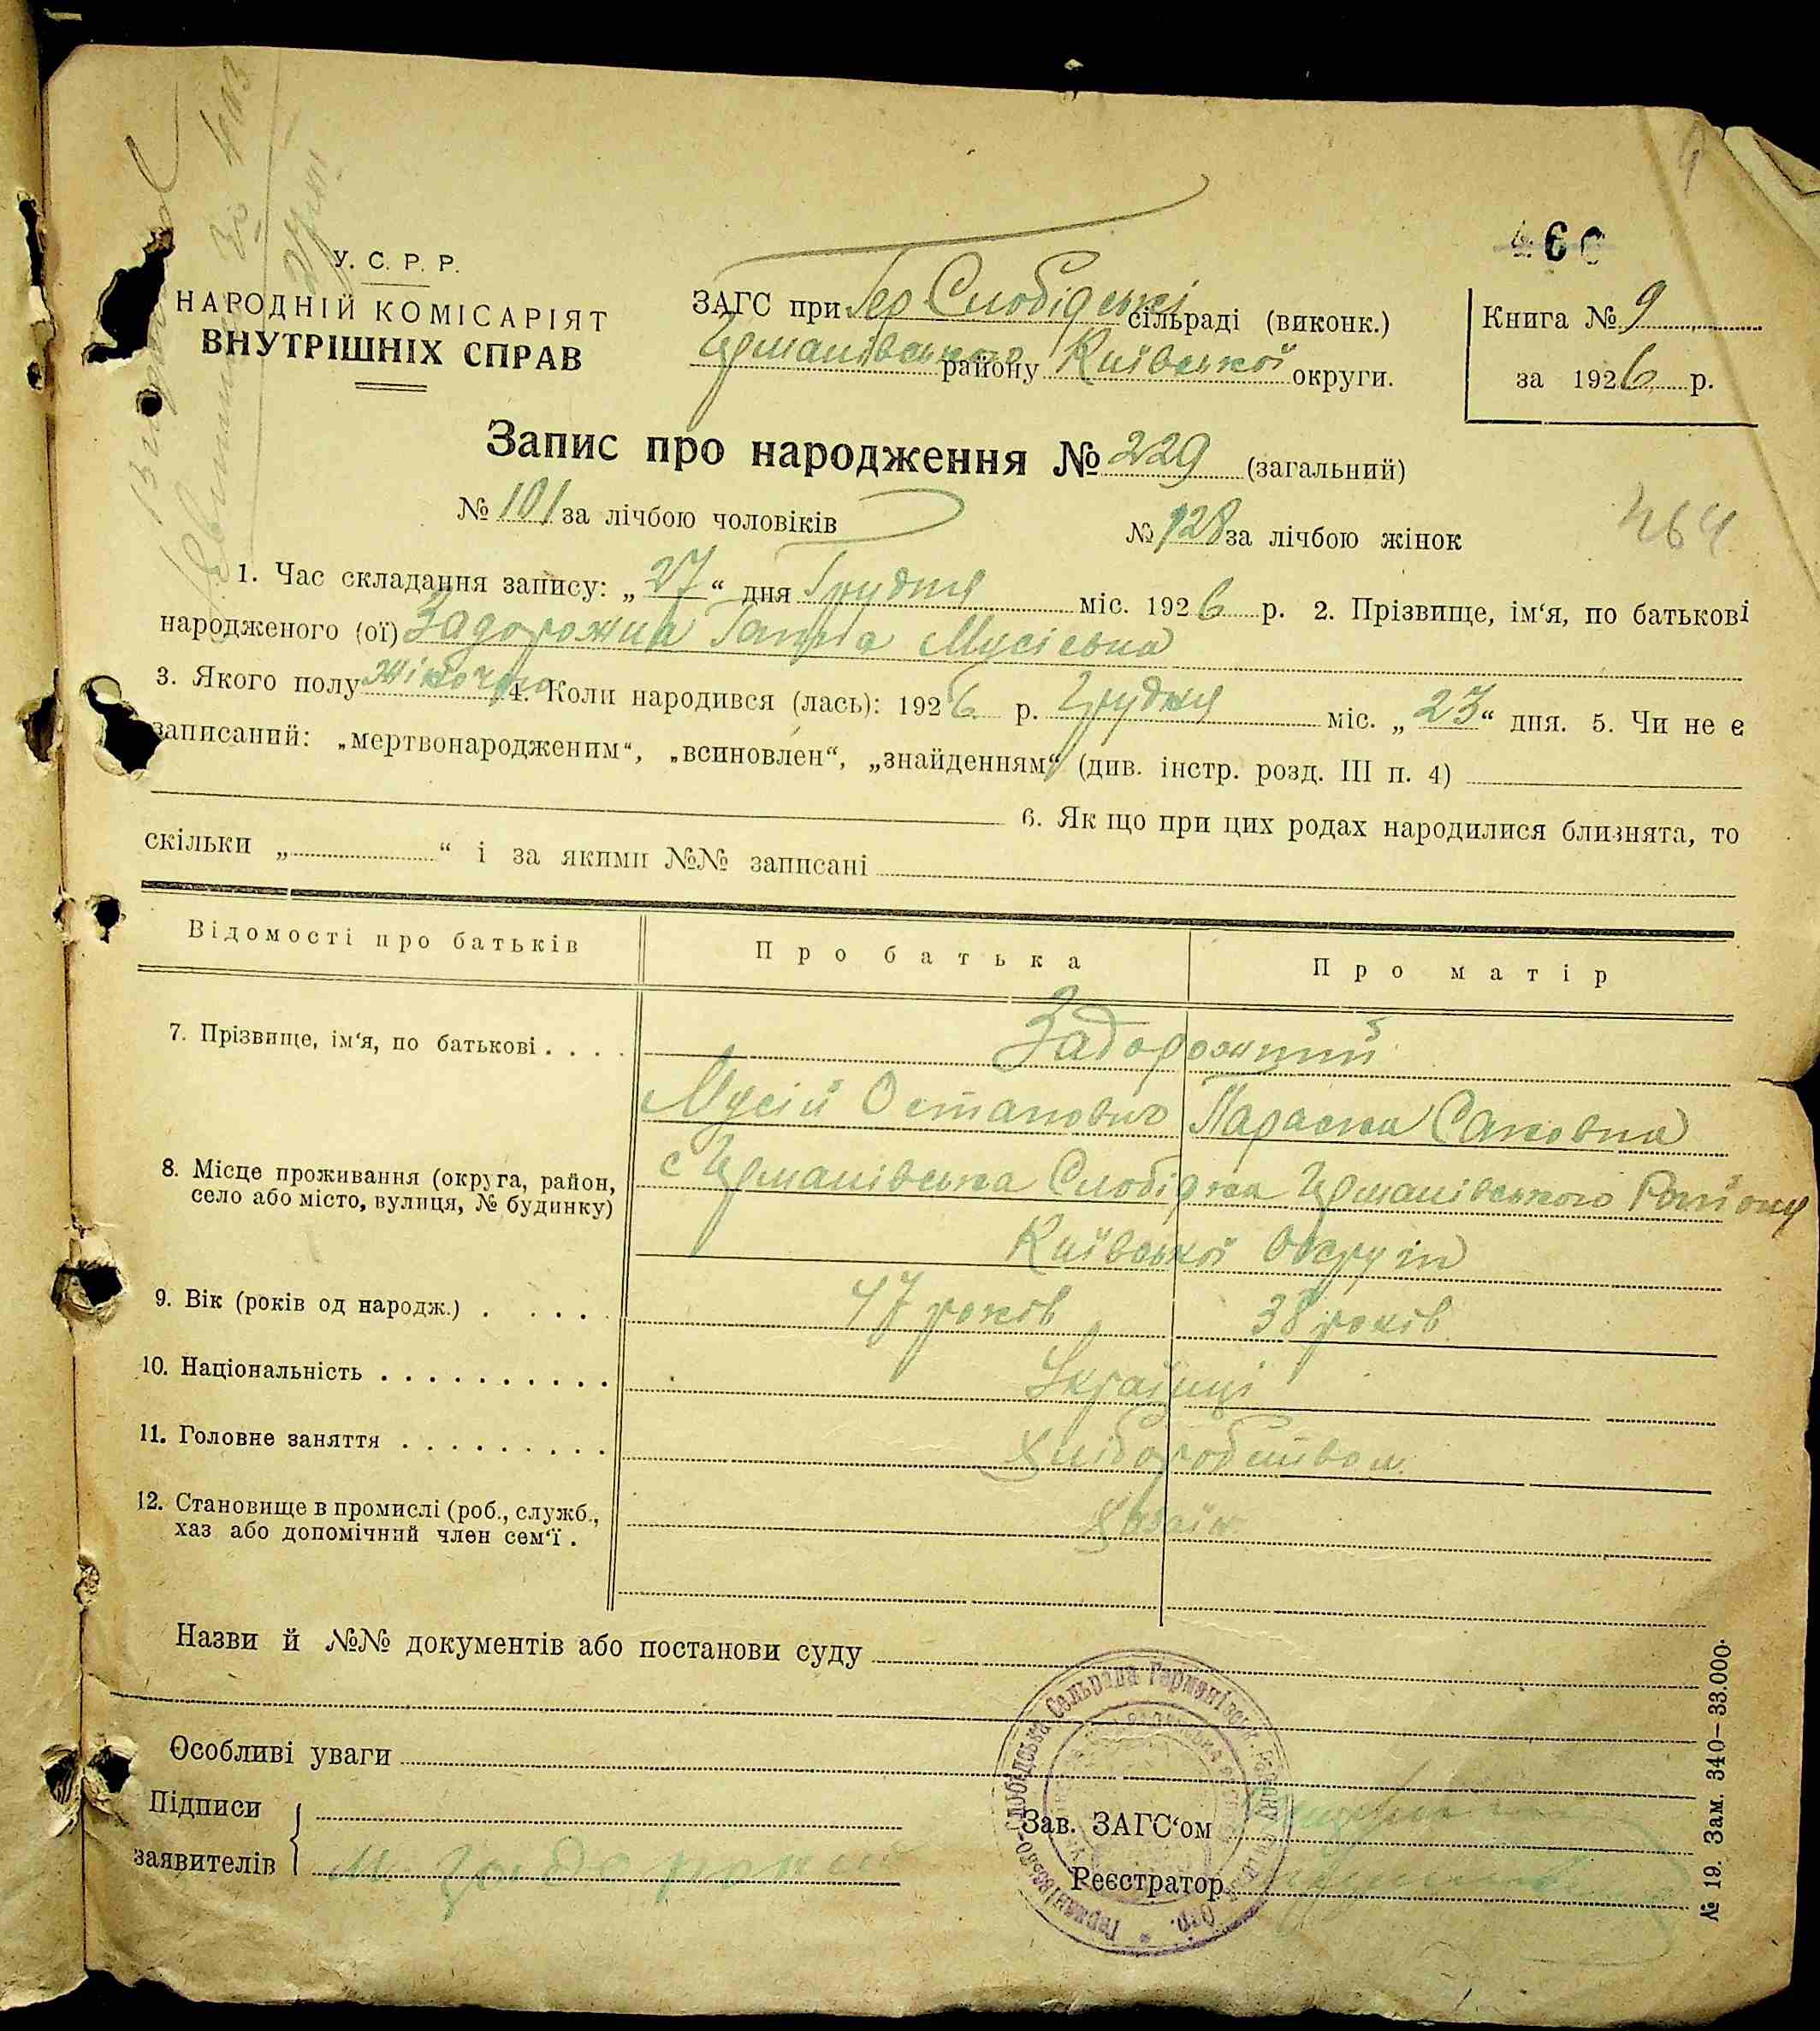 460
У. С. Р. Р.
НАРОДНІЙ КОМІСАРІЯТ
ВНУТРІШНІХ СПРАВ
ЗАГС при Гер Слобідські сільраді (виконк.)
Германівського району Київської округи.
Книга № 9
за 1926 р.
Запис про народження № 229 (загальний)
№ 101 за лічбою чоловіків
№ 128 за лічбою жінок
464
1. Час складання запису: „27“ дня Грудня міс. 1926 р. 2. Прізвище, ім‘я, по батькові
народженого (ої) Задорожна Ганна Мусієвна
3. Якого полу жіночого 4. Коли народився (лась): 1926 р. Грудня міс. „23“ дня. 5. Чи не є
записаний: „мертвонародженим“, „всиновлен“, „знайденням“ (див. інстр. розд. III п. 4)
6. Як що при цих родах народилися близнята, то
скільки „ “ і за якими №№ записані
Відомості про батьків
Про батька
Про матір
7. Прізвище, ім‘я, по батькові . . . .
Задорожний
Мусій Остапович Параска Саковна
8. Місце проживання (округа, район,
село або місто, вулиця, № будинку)
с Германівська Слобідка Германівського Району
Київської Округи
9. Вік (років од народж.) . . . . .
47 років 38 років
10. Національність . . . . . . . . . .
Українці
11. Головне заняття . . . . . . . . .
Хліборобством
12. Становище в промислі (роб., служб.,
хаз або допомічний член сем‘ї .
Хазяїн
Назви й №№ документів або постанови суду
Особливі уваги
Підписи
заявителів
М Задорожний
Зав. ЗАГС‘ом
Реєстратор
Германівсько-Слобідська Сельрада Германівськ. Району Київськ. Окр.
№ 19. Зам. 340–33.000.